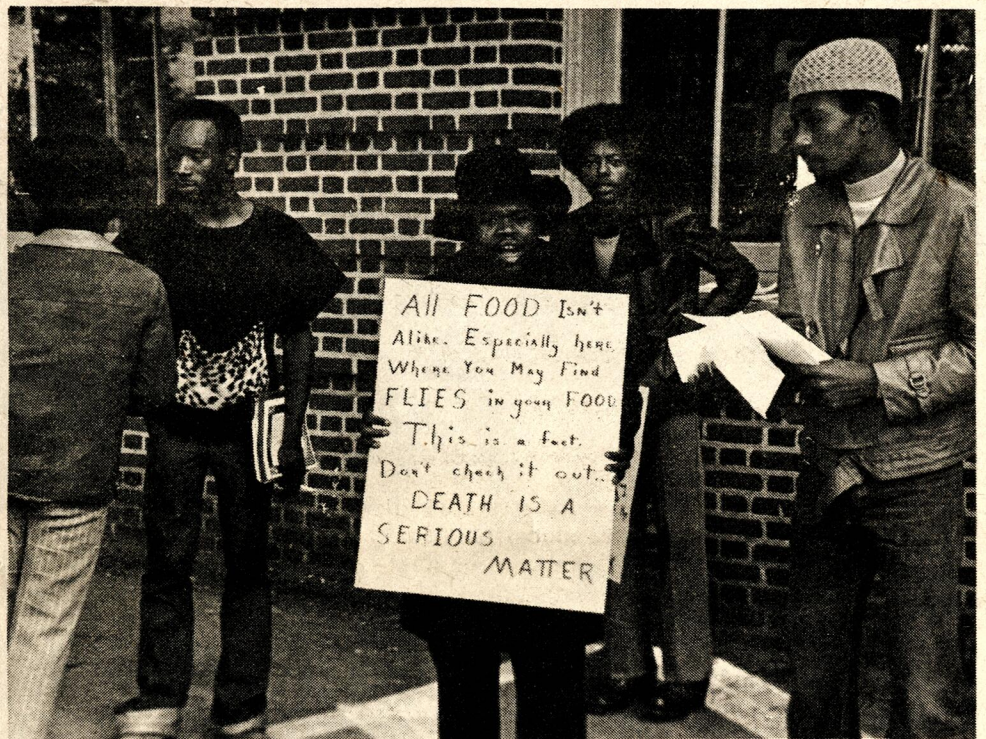 All FOOD Isn't
Alike. Especially here
Where You May Find
FLIES in your FOOD
This is a fact.
Don't check it out...
DEATH IS A
SERIOUS
MATTER